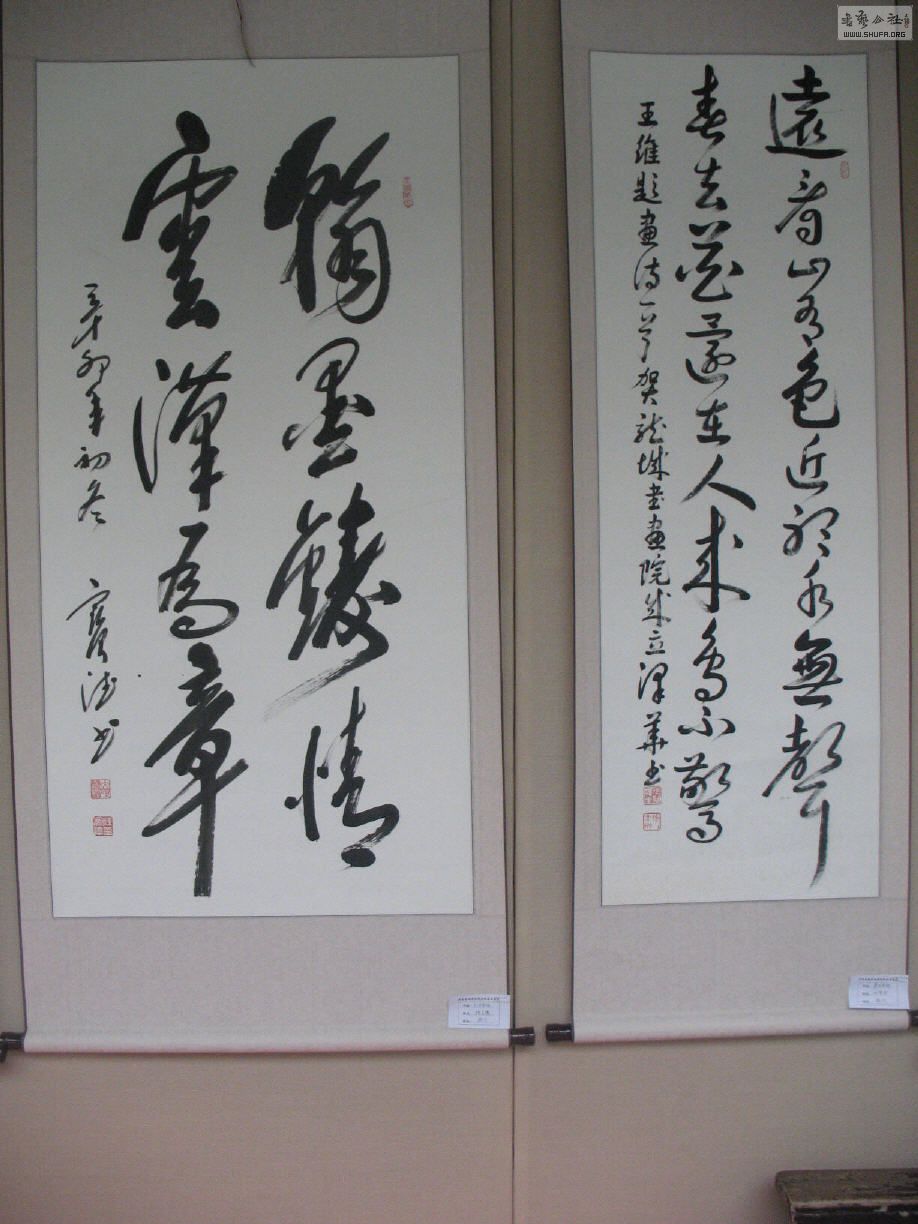 書藝公社
WWW.SHUFA.ORG
遠看山有色近聽水無聲
春去花還在人來鳥不驚
王維題畫詩一首賀龍城書畫院成立澤華書
翰墨情
雲漢為章
辛卯年初冬